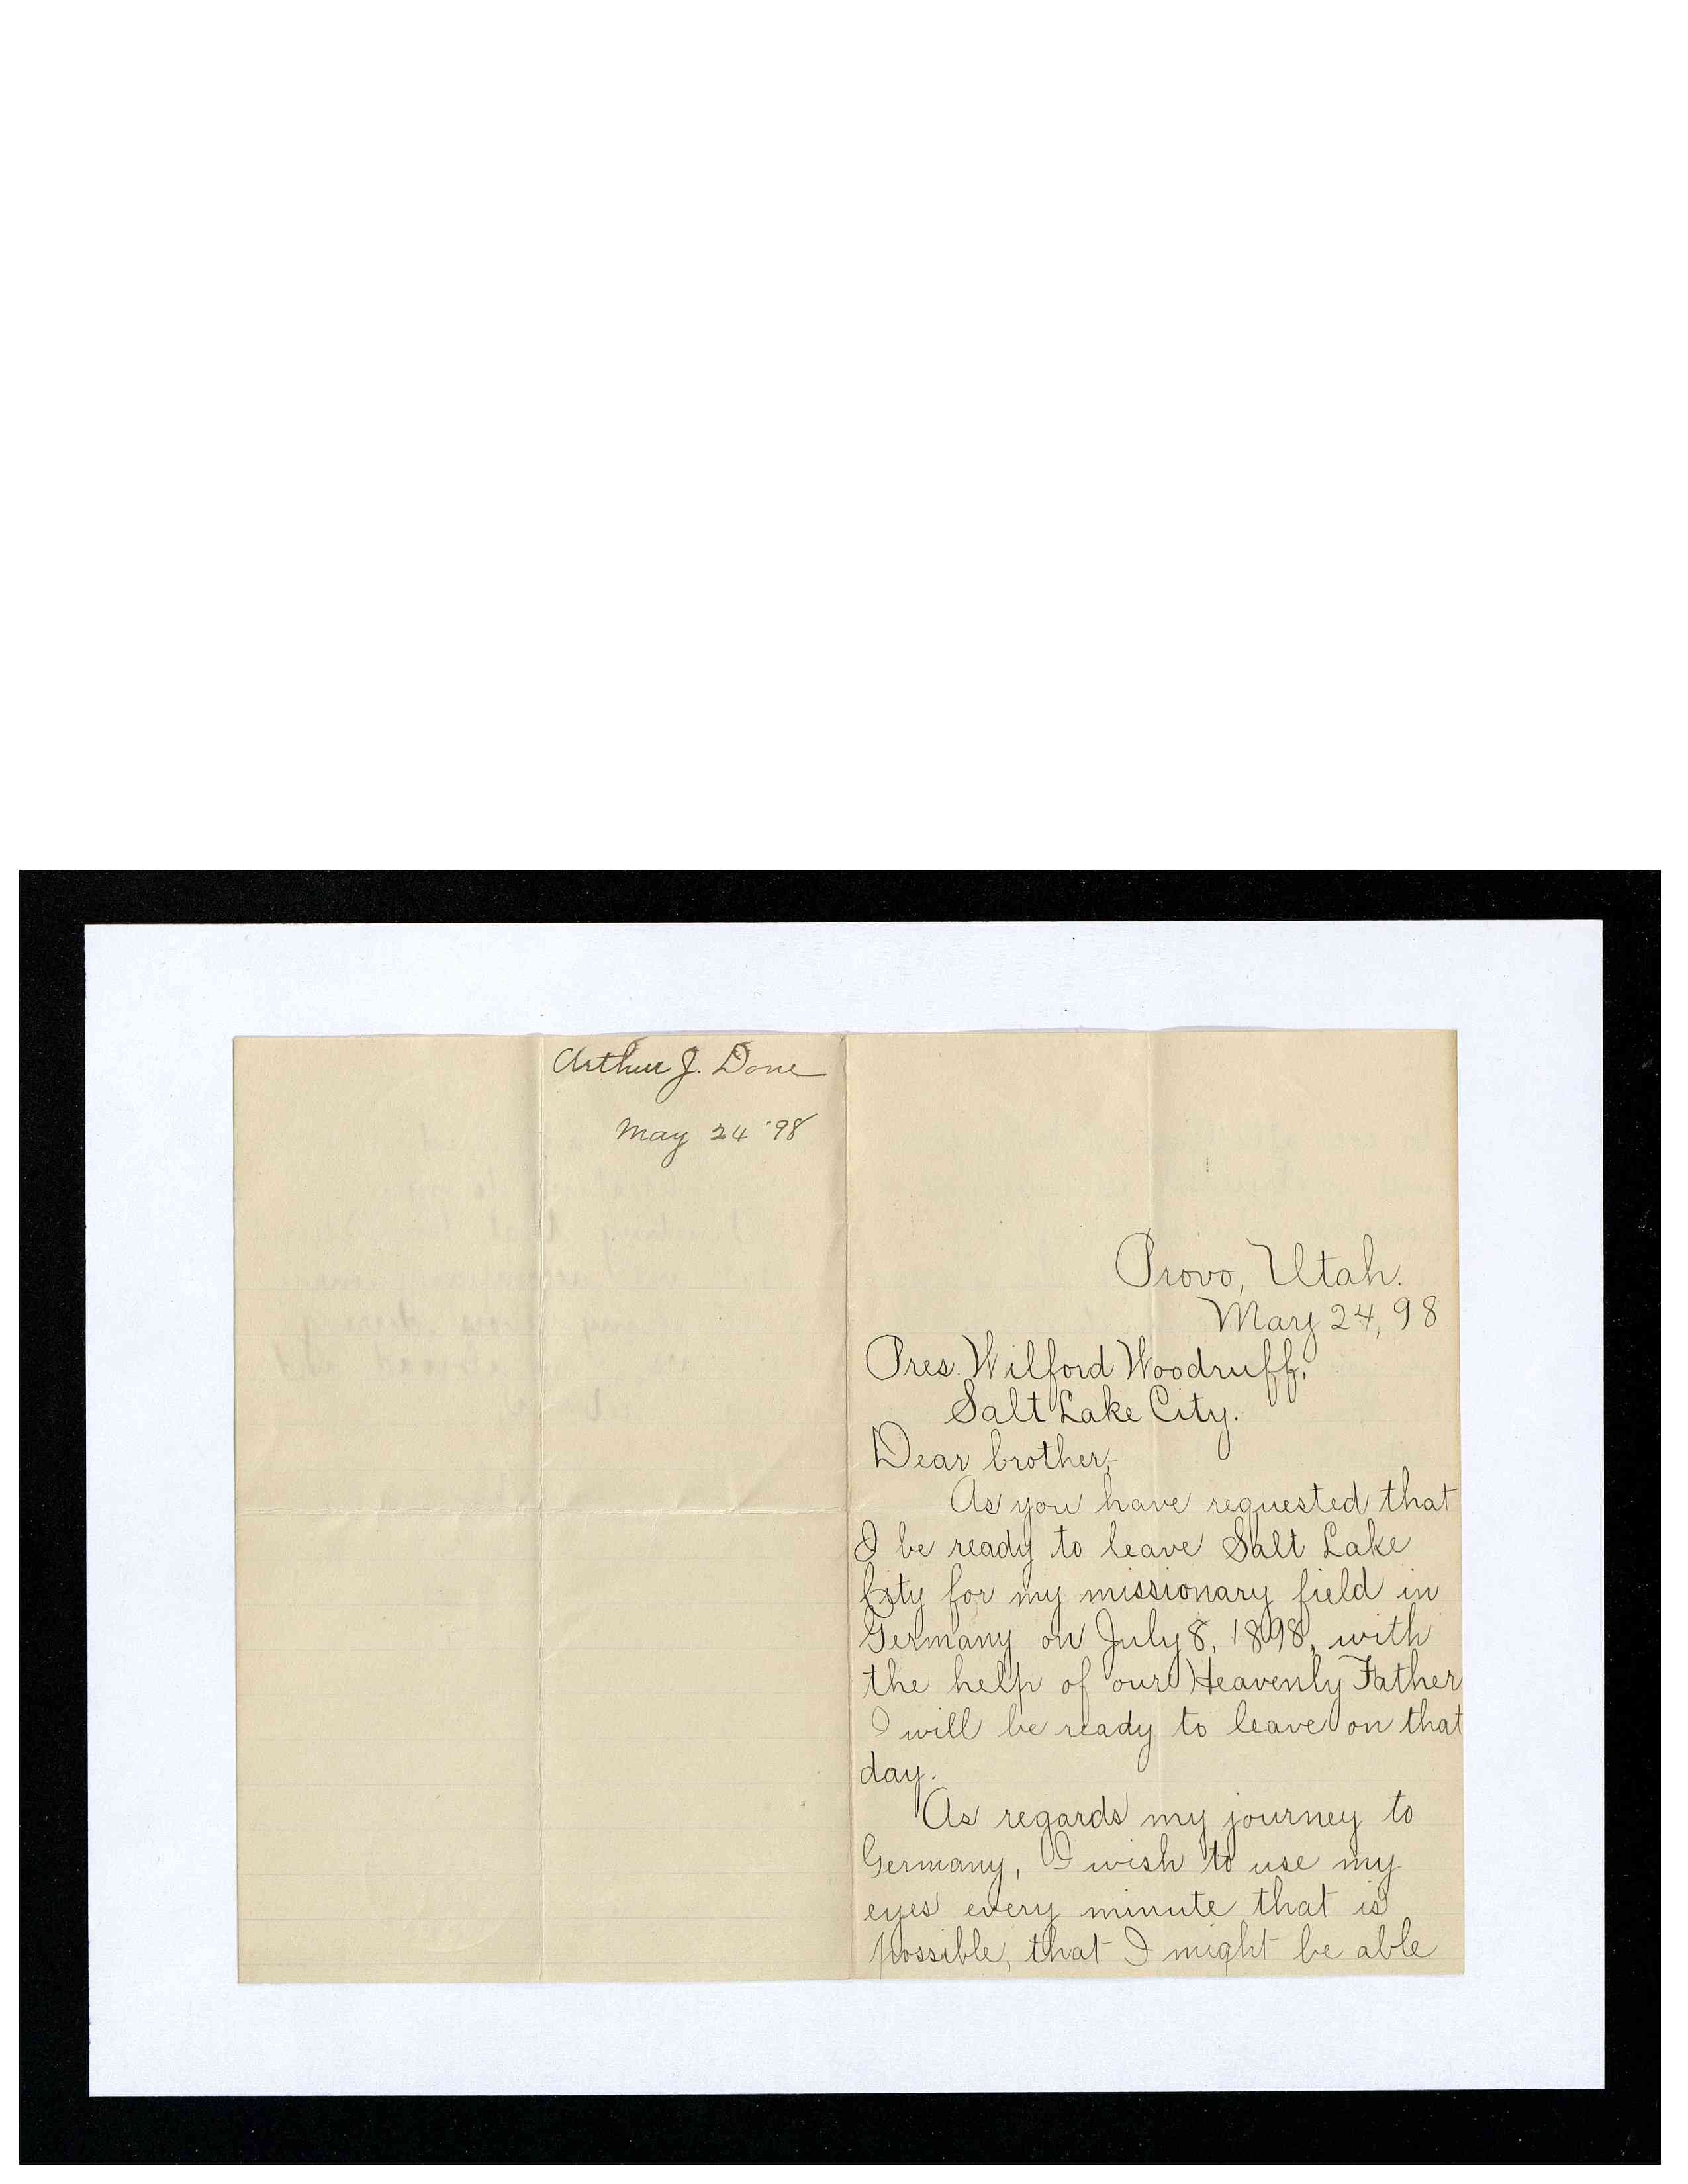 Arthur J. Done
May 24 '98
Provo, Utah.
May 24, 98
Pres. Wilford Woodruff,
Salt Lake City.
Dear brother,-
As you have requested that
I be ready to leave Salt Lake
City for my missionary field in
Germany on July 8, 1898, with
the help of our Heavenly Father
I will be ready to leave on that
day.
As regards my journey to
Germany, I wish to use my
eyes every minute that is
possible, that I might be able